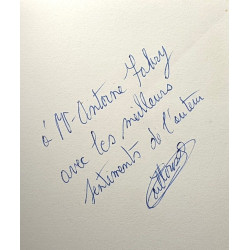 à Mr Antoine Fabry
avec les meilleurs
sentiments de l'auteur